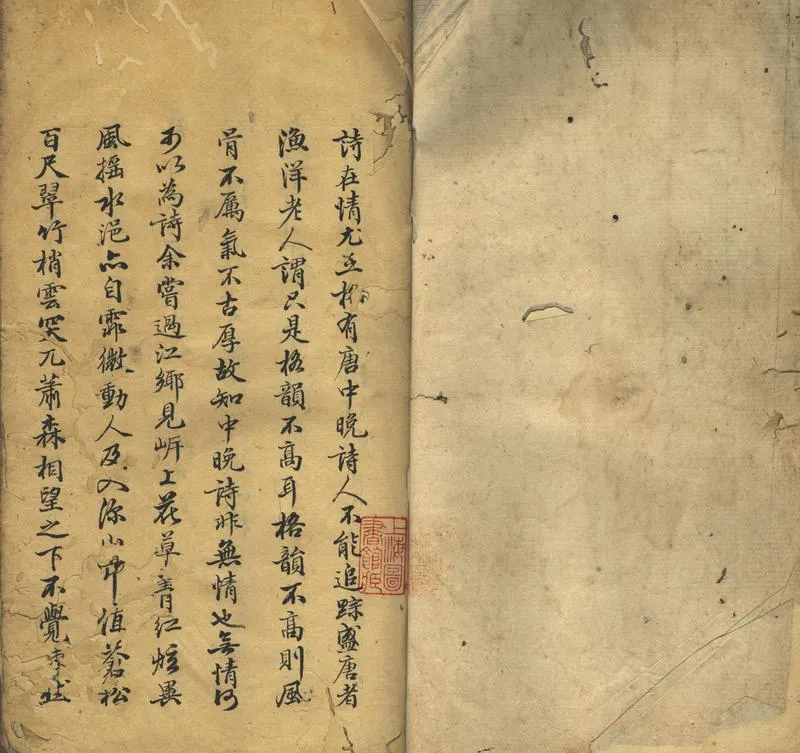 詩在情尤有唐中晚詩人不能追踪盛唐者
漁洋老人謂只是格韻不高耳格韻不高則風
骨不厲氣不古厚故知中晚詩非無情也無情何
可以為詩余嘗過江鄉見岸上花草青紅炫異
風搖水浥亦自霏微動人及入深山中值蒼松
百尺翠竹梢雲突兀蕭森相望之下不覺然
上海圖
書館藏